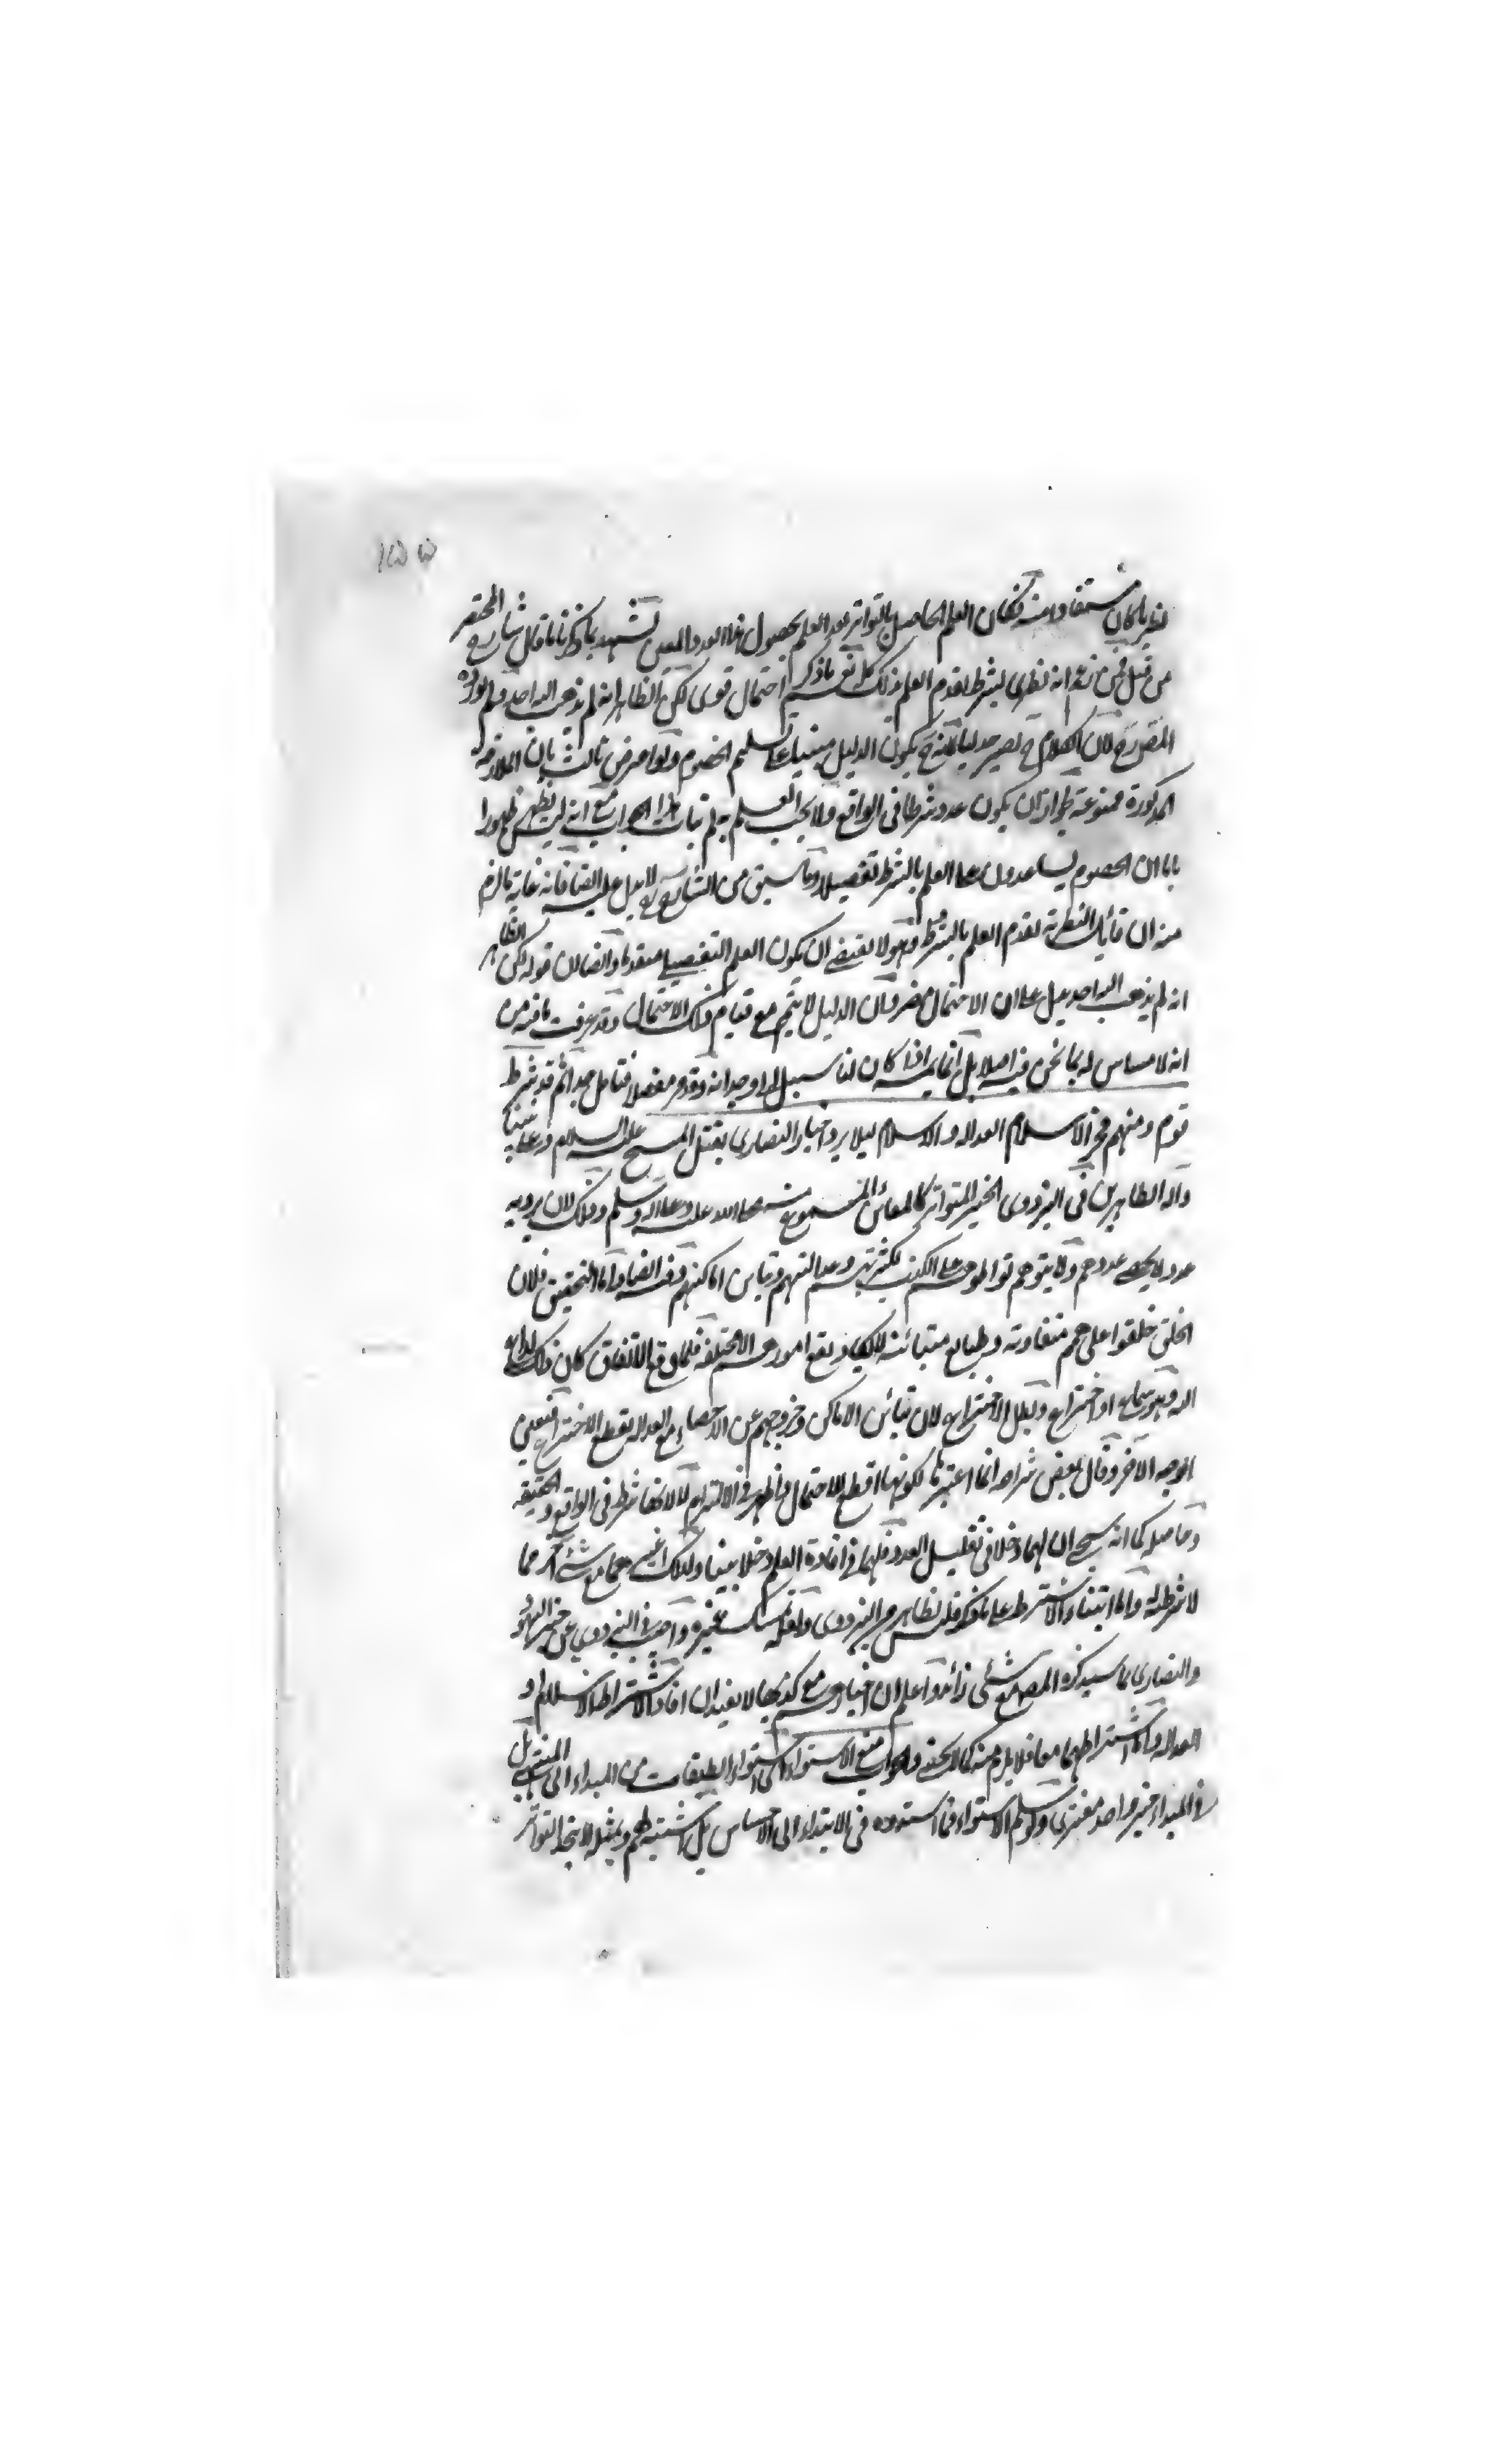 ١٥٥
نظريا كان مستفادا منه فكان العلم الحاصل بالتواتر بعد العلم بحصول هذا العدد المعين يشهد بما ذكرنا ما قال شارح المختصر
من قبل فمن زعم انه نظرى يشترط تقدم العلم بذلك كله احتمال قوى لكن الظاهر انه لم يذهب اليه احد ولم يورده
المص رح لان الكلام ح يصير جدليا لانه ح يكون الدليل مبنيا على تسليم الخصوم ولو اعترض ثالث بان الملازمة
المذكورة ممنوعة لجواز ان يكون عدد شرطا فى الواقع ولا يجب العلم به لم تيات هذا الجواب مع انه ليس يظهر ظهورا
بابا ان الخصوم يساعدون على العلم بالشرط تفصيلا وما سبق من الشارح لا يدل عليه ايضا فانه غاية ما لزم
منه ان قائل النظرية تقدم العلم بالشرط وهو لا يقتضى ان يكون العلم التفصيلى متقدما وايضا لان قوله لكن الظاهر
انه لم يذهب اليه احد يدل على ان الاحتمال مضر وان الدليل لا يتم مع قيام ذلك الاحتمال وقد عرفت ما فيه من
انه لا مساس له بما نحن فيه اصلا بل انما يمسه اذا كان لنا سبيل الى وجدانه وقد مر مفصلا فتامل جدا ثم قد شرط
قوم ومنهم فخر الاسلام العدالة والاسلام ليلا يرد اخبار النصارى بقتل المسيح عليه السلام وعلى نبينا
وآله الطاهرين فى البزدوى الخبر المتواتر كالمعاين المسموع منه صلى الله عليه وعلى آله وسلم وذلك لان يرويه
عدد لا يحصى عددهم ولا يتوهم تواطؤهم على الكذب لكثرتهم وعدالتهم وتباين اماكنهم وفيه ايضا واما التحقيق فلان
الخلق خلقوا على همم متفاوتة وطبايع متبائنة لا يكاد يقع امورهم الا مختلفة فلما وقع الاتفاق كان ذلك لداع
اليه وهو سماع او اختراع وبطل الاختراع لان تبائن الاماكن وخروجهم عن الاحصاء مع العدالة يقطع الاختراع فتعين
الوجه الآخر وقال بعض شراحه انما اعتبرها لكونها اقطع للاحتمال واظهر فى الالتزام لا لانها شرط فى الواقع والحقيقة
وحاصله كما انه سيجئ ان لهما دخلا فى تقليل العدد فلهما فى افادة العلم دخلا بينا ولذلك مع شئ آخر مما
لا شرطية واما ابتناء الاشتراط على ما ذكر فليس بظاهر من البزدوى ولعله تمسك غيره واجيب فى البزدوى عن خبر اليهود
والنصارى بما سيذكره المص مع شئ زائد واعلم ان اخبارهم مع كذبها لا يفيد ان افاد الاشتراط الاسلام او
العدالة واما اشتراطهما معا فلا يلزم منه كما لا يخفى والجواب منع الاستواء اى استواء الطبقات من المبداء الى المنتهى بل
فى المبداء خبر واحد مفترى ولو سلم الاستواء فما استندوه فى الابتداء الى الاحساس بل اشتبه لهم وبمثله لا يتحقق التواتر